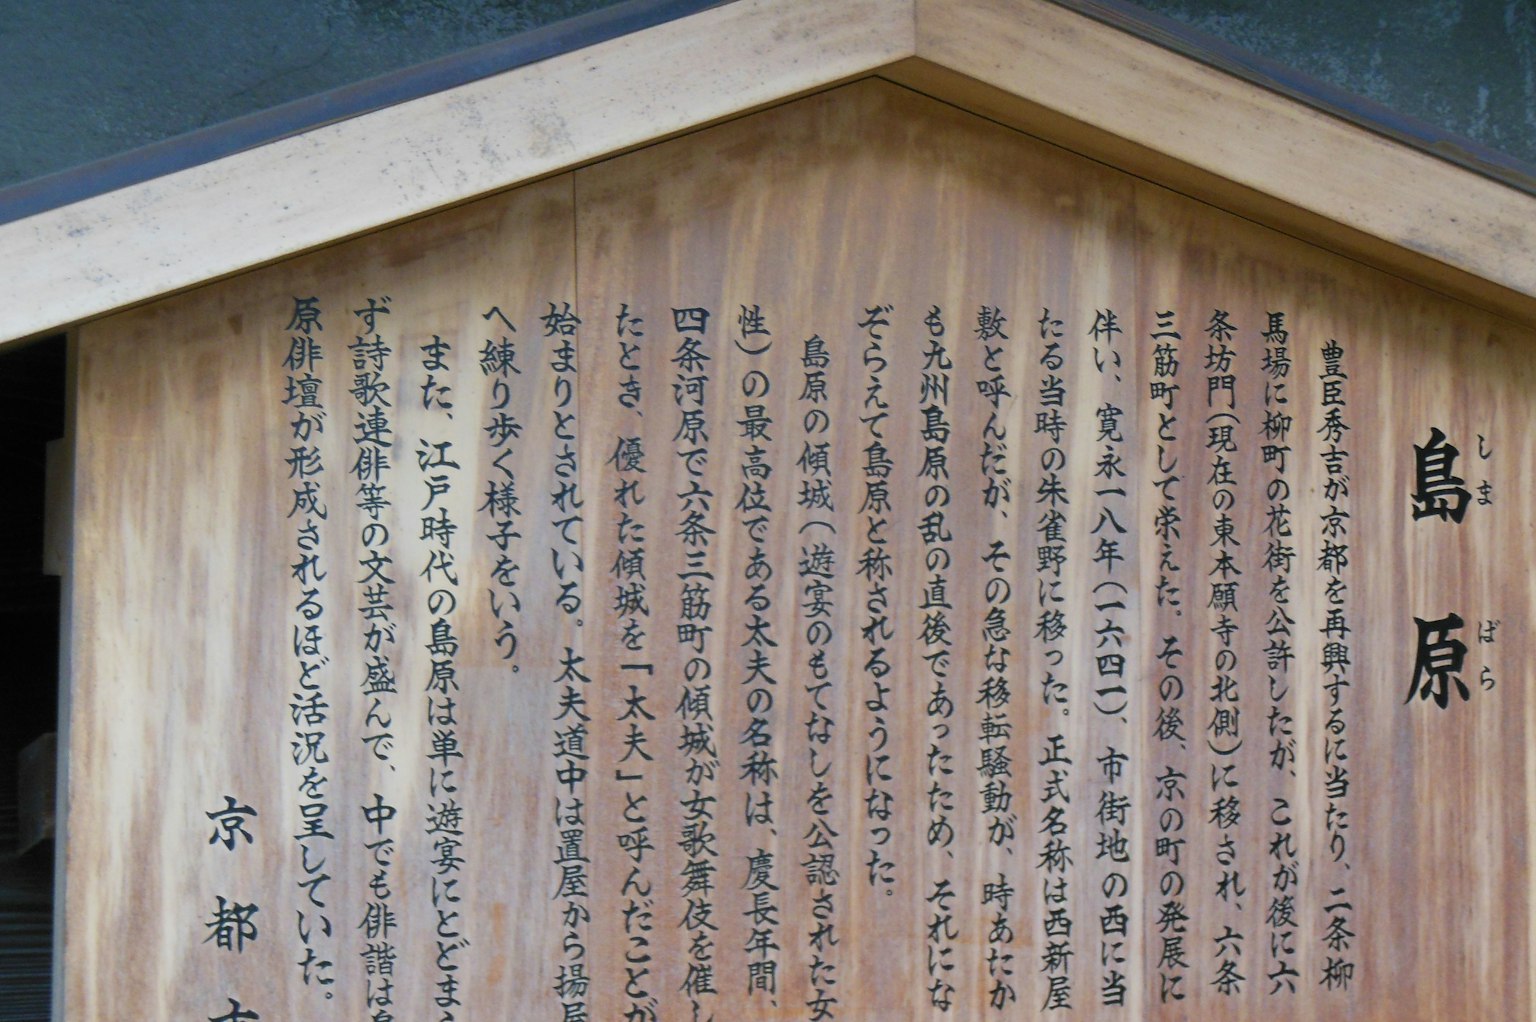 島原
しまばら
豊臣秀吉が京都を再興するに当たり、二条柳
馬場に柳町の花街を公許したが、これが後に六
条坊門(現在の東本願寺の北側)に移され、六条
三筋町として栄えた。その後、京の町の発展に
伴い、寛永一八年(一六四一)、市街地の西に当
たる当時の朱雀野に移った。正式名称は西新屋
敷と呼んだが、その急な移転騒動が、時あたか
も九州島原の乱の直後であったため、それにな
ぞらえて島原と称されるようになった。
島原の傾城(遊宴のもてなしを公認された女
性)の最高位である太夫の名称は、慶長年間、
四条河原で六条三筋町の傾城が女歌舞伎を催し
たとき、優れた傾城を「太夫」と呼んだことが
始まりとされている。太夫道中は置屋から揚屋
へ練り歩く様子をいう。
また、江戸時代の島原は単に遊宴にとどまら
ず詩歌連俳等の文芸が盛んで、中でも俳諧は島
原俳壇が形成されるほど活況を呈していた。
京都市